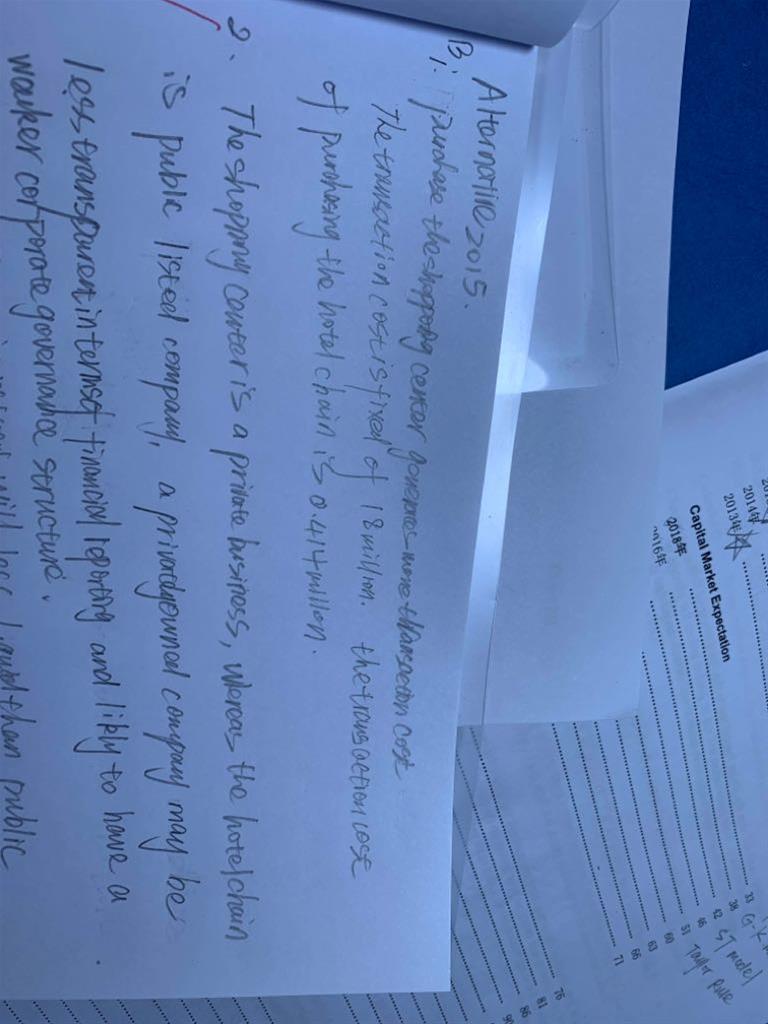 Alternative 2015.
B: 1. purchase the shopping center generates more transaction cost
The transaction cost is fixed of 18 million. the transaction cost
of purchasing the hotel chain is 0.414 million.
2. The shopping center is a private business, whereas the hotel chain
is public listed company, a privately owned company may be
less transparent in terms of financial reporting and likely to have a
weaker corporate governance structure.
will less than public
2014年
2013年
Capital Market Expectation
2018年
2016年
33
38
42
46
51
60
63
66
71
76
81
86
90
G-K
ST model
Taylor Rule